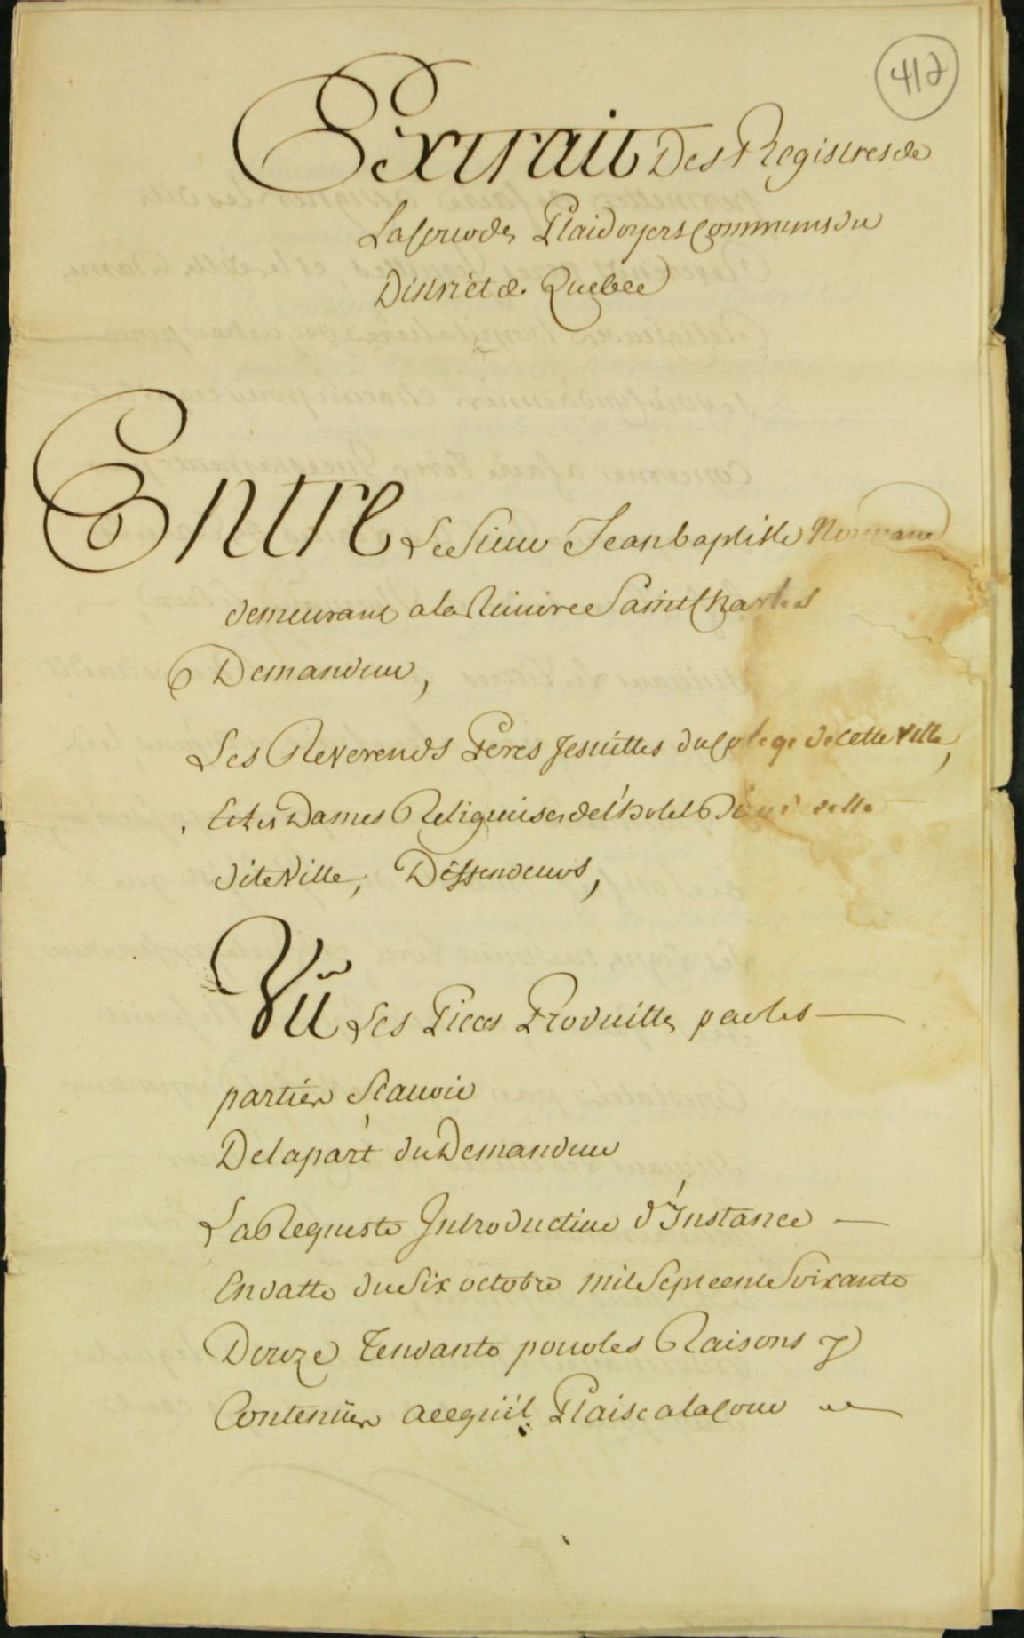 412
Extrait Des Registres de
La Cour des Plaidoyers Communs du
District de Quebec
Entre Le Sieur Jean baptiste Normand
demeurant a la Riviere Saint Charles
Demandeur,
Les Reverends Peres Jesuittes du Colege de cette ville,
Et les Dames Religieuses de l'hotel Dieu de la
dite Ville, Deffendeurs,
Vû Les Pieces Produittes par les
parties Scauoir
De la part du Demandeur
La Requeste Introductive d'Instance
En datte du Six octobre mil Sept cent Soixante
Douze Tendante pour les Raisons y
Contenües a ce qu'il Plaise a la Cour